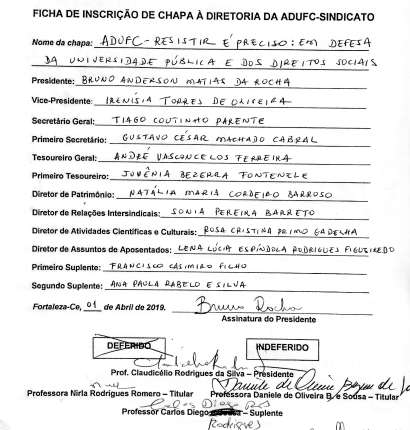 FICHA DE INSCRIÇÃO DE CHAPA À DIRETORIA DA ADUFC-SINDICATO
Nome da chapa: ADUFC - RESISTIR É PRECISO: EM DEFESA
DA UNIVERSIDADE PÚBLICA E DOS DIREITOS SOCIAIS
Presidente: BRUNO ANDERSON MATIAS DA ROCHA
Vice-Presidente: IRENÍSIA TORRES DE OLIVEIRA
Secretário Geral: TIAGO COUTINHO PARENTE
Primeiro Secretário: GUSTAVO CÉSAR MACHADO CABRAL
Tesoureiro Geral: ANDRÉ VASCONCELOS FERREIRA
Primeiro Tesoureiro: JUVÊNIA BEZERRA FONTENELE
Diretor de Patrimônio: NATÁLIA MARIA CORDEIRO BARROSO
Diretor de Relações Intersindicais: SONIA PEREIRA BARRETO
Diretor de Atividades Científicas e Culturais: ROSA CRISTINA PRIMO GADELHA
Diretor de Assuntos de Aposentados: LENA LÚCIA ESPÍNDOLA RODRIGUES FIGUEIREDO
Primeiro Suplente: FRANCISCO CASIMIRO FILHO
Segundo Suplente: ANA PAULA RABELO E SILVA
Fortaleza-Ce, 01 de Abril de 2019. Bruno Rocha
Assinatura do Presidente
DEFERIDO INDEFERIDO
Prof. Claudicélio Rodrigues da Silva – Presidente
Daniele de Oliveira Bezerra de
Professora Nirla Rodrigues Romero – Titular Professora Daniele de Oliveira B. e Sousa – Titular
Carlos Diego
Professor Carlos Diego – Suplente
Rodrigues